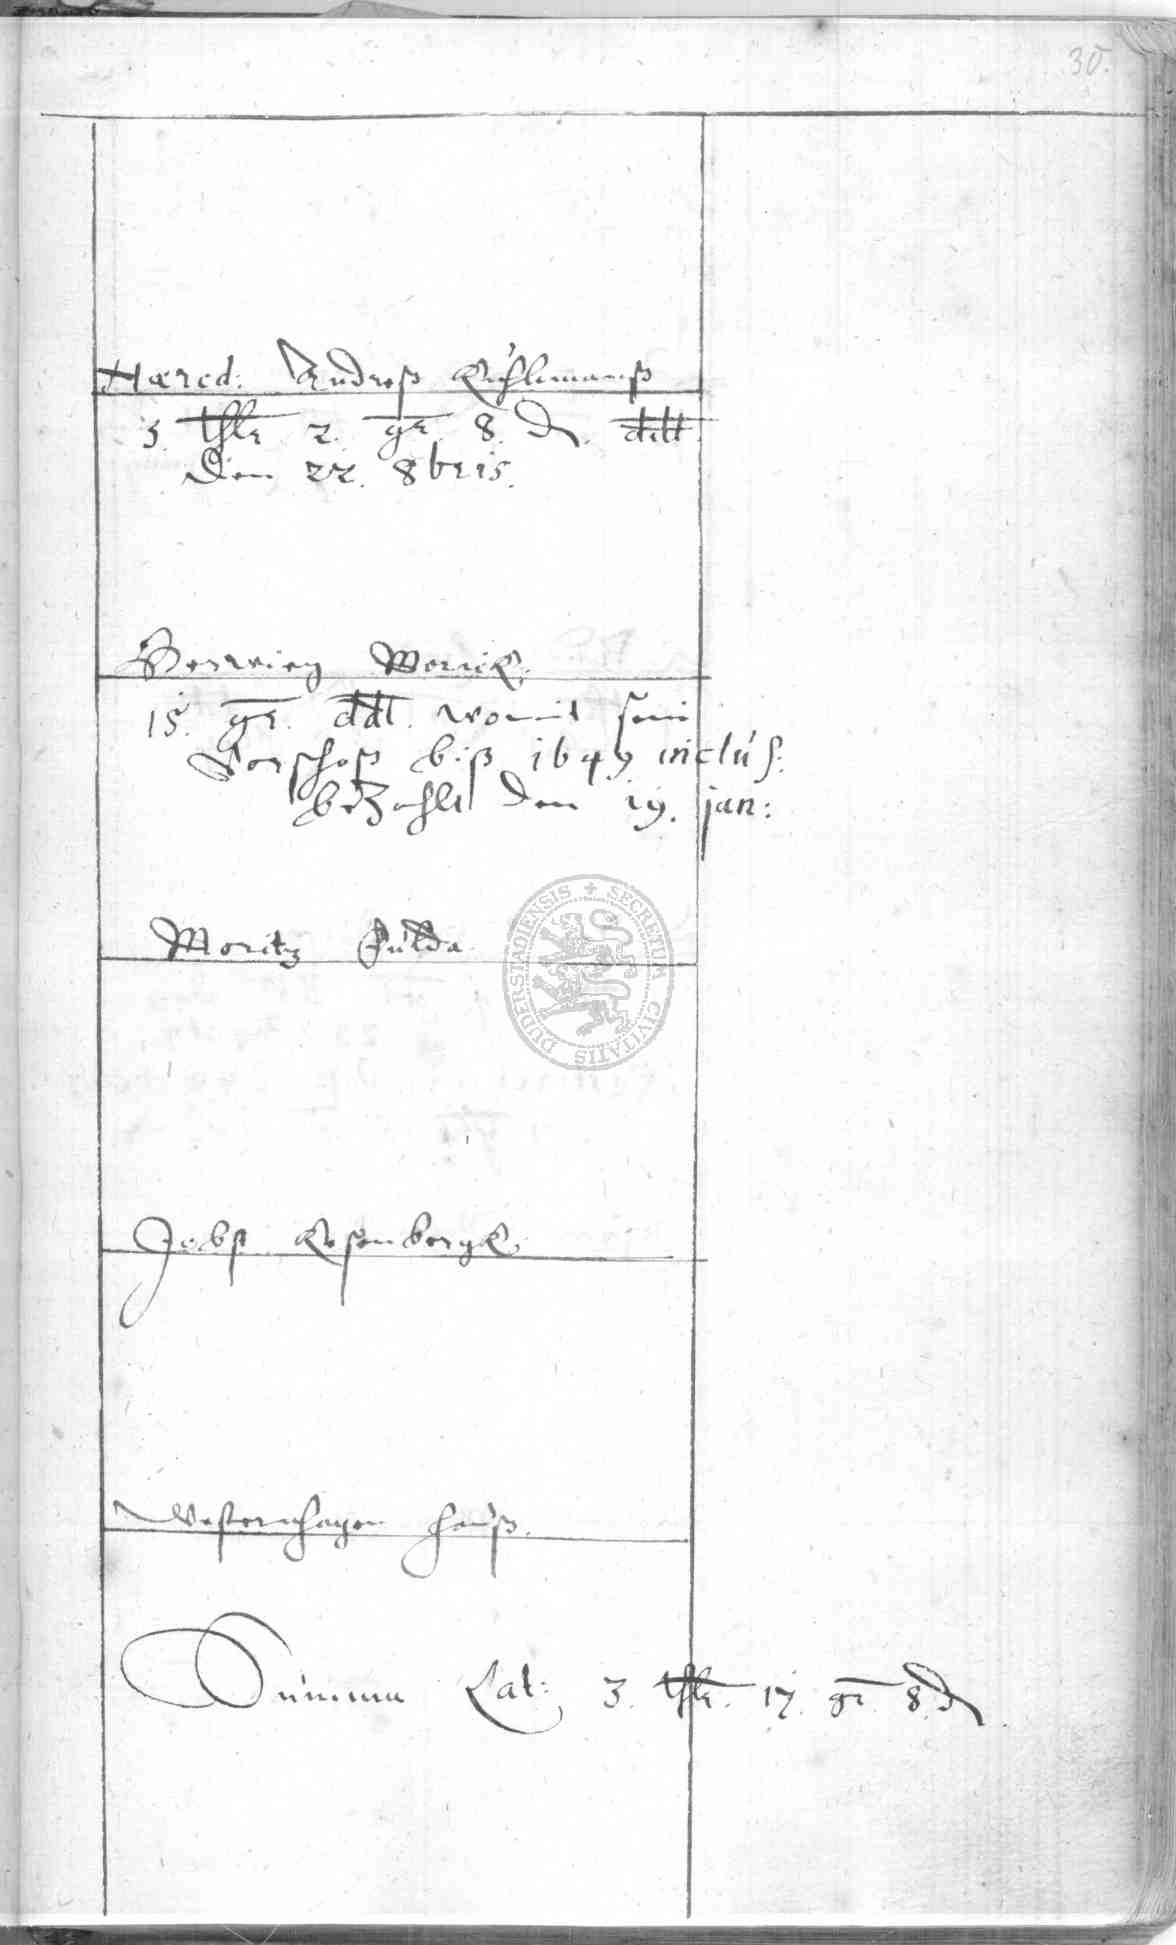 30.
Haered: Andreß Kuhlmanß
3. thlr 2. gr. 8. d. ddt.
Den 22. 8bris.
Moritz Fulda
15. gr. ddt. womit sein
Vorschoß biß 1649 inclus:
bezahlt den 19. jan:
DUDERSTADIENSIS + SECRETUM CIVITATIS
Jobst Esenbergk
Westernhagen hauß.
Summa Lat: 3. thlr. 17. gr. 8. d